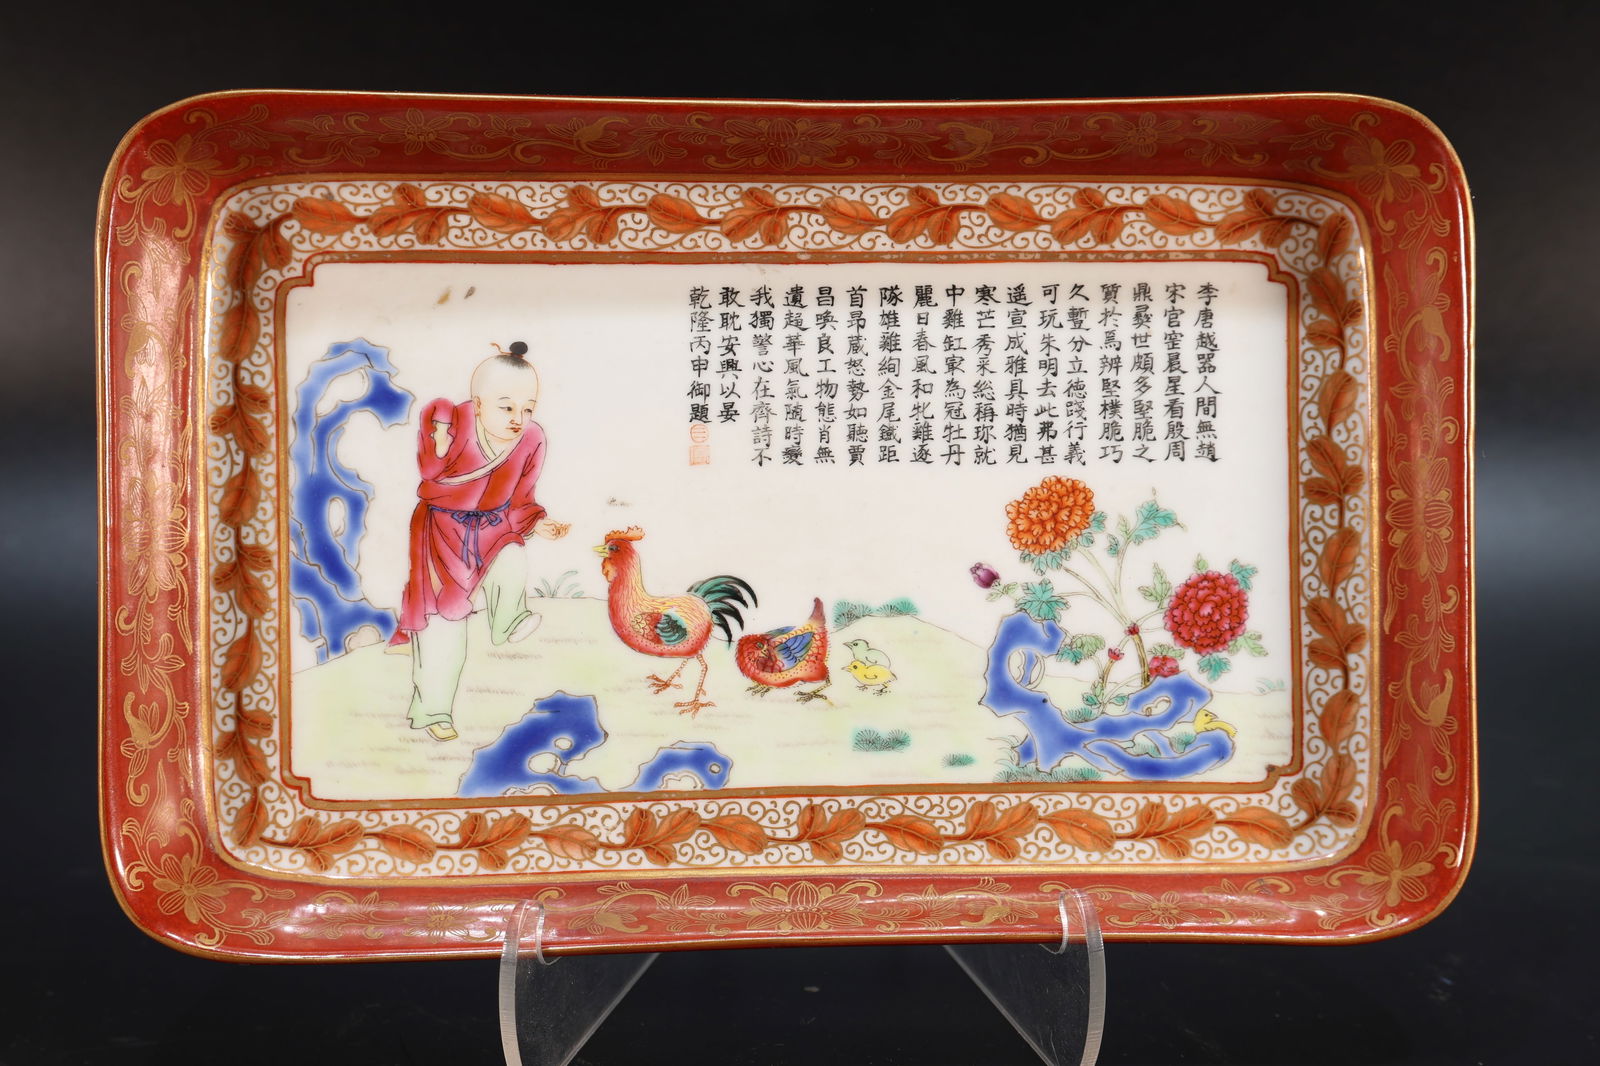 李唐越器人間無趙
宋官窑晨星看殷周
鼎彝世頗多堅脆之
質於焉辨堅樸脆巧
久暫分立德踐行義
可玩朱明去此弗甚
遥宣成雅具時猶見
寒芒秀采総稱珎就
中雞缸冣為冠牡丹
麗日春風和牝雞逐
隊雄雞絢金尾鐵距
首昂藏怒勢如聽賈
昌喚良工物態肖無
遺趍華風氣隨時變
我獨警心在齊詩不
敢耽安興以晏
乾隆丙申御題